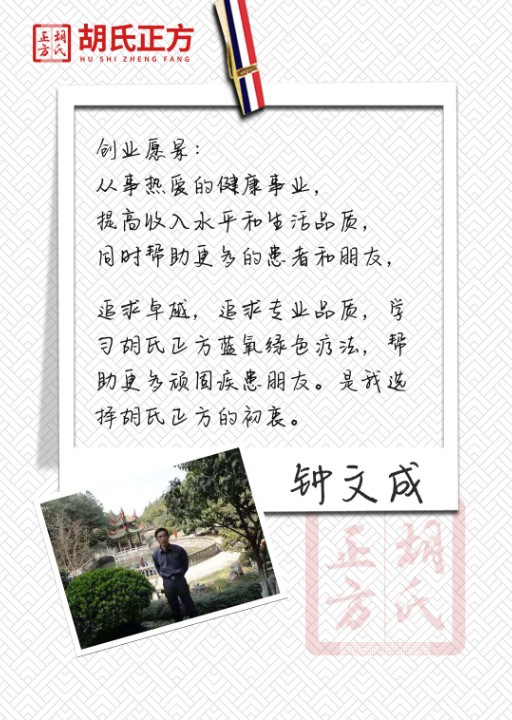 正方
胡氏
胡氏正方
HU SHI ZHENG FANG
创业愿景：
从事热爱的健康事业，
提高收入水平和生活品质，
同时帮助更多的患者和朋友，
追求卓越，追求专业品质，学
习胡氏正方蓝氧绿色疗法，帮
助更多顽固疾患朋友。是我选
择胡氏正方的初衷。
钟文成
正方
胡氏